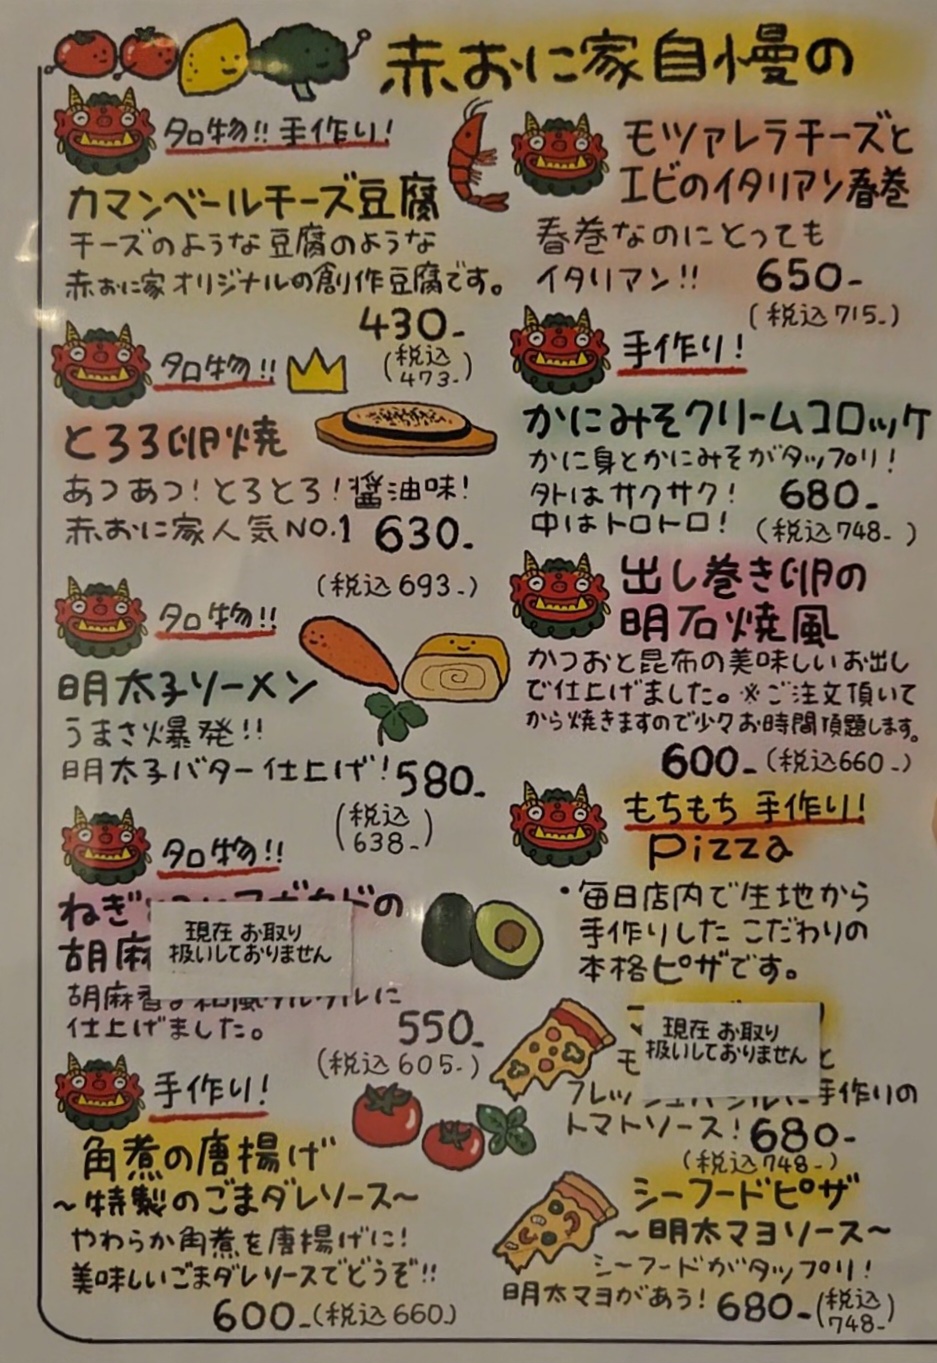 赤おに家自慢の
名物!!手作り!
カマンベールチーズ豆腐
チーズのような豆腐のような
赤おに家オリジナルの創作豆腐です。
430-
(税込
473-)
名物!!
とろろ卵焼
あつあつ!とろとろ!醤油味!
赤おに家人気NO.1 630-
(税込693-)
名物!!
明太子ソーメン
うまさ爆発!!
明太子バター仕上げ!580-
(税込
638-)
名物!!
ねぎ アボカドの
胡麻
現在 お取り
扱いしておりません
胡麻香る和風 に
仕上げました。
550-
(税込605-)
手作り!
角煮の唐揚げ
~特製のごまダレソース~
やわらか角煮を唐揚げに!
美味しいごまダレソースでどうぞ!!
600-(税込660)
モツァレラチーズと
エビのイタリアン春巻
春巻なのにとっても
イタリアン!! 650-
(税込715-)
手作り!
かにみそクリームコロッケ
かに身とかにみそがタップリ!
外はサクサク! 680-
中はトロトロ! (税込748-)
出し巻き卵の
明石焼風
かつおと昆布の美味しいお出し
で仕上げました。※ご注文頂いて
から焼きますので少々お時間頂題します。
600-(税込660-)
もちもち 手作り!
Pizza
・毎日店内で生地から
手作りした こだわりの
本格ピザです。
現在 お取り
扱いしておりません
モ と
フレッシュバジルに手作りの
トマトソース!680-
(税込748-)
シーフードピザ
~明太マヨソース~
シーフードがタップリ!
明太マヨがあう!680-(税込
748-)